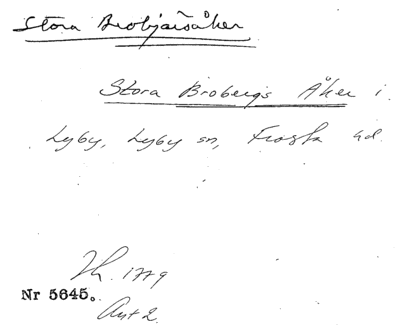 Stora Brobjärsåker
Stora Brobergs Åker i
Lyby, Lyby sn, Frosta hd.
1779
Nr 5645.
Akt 2